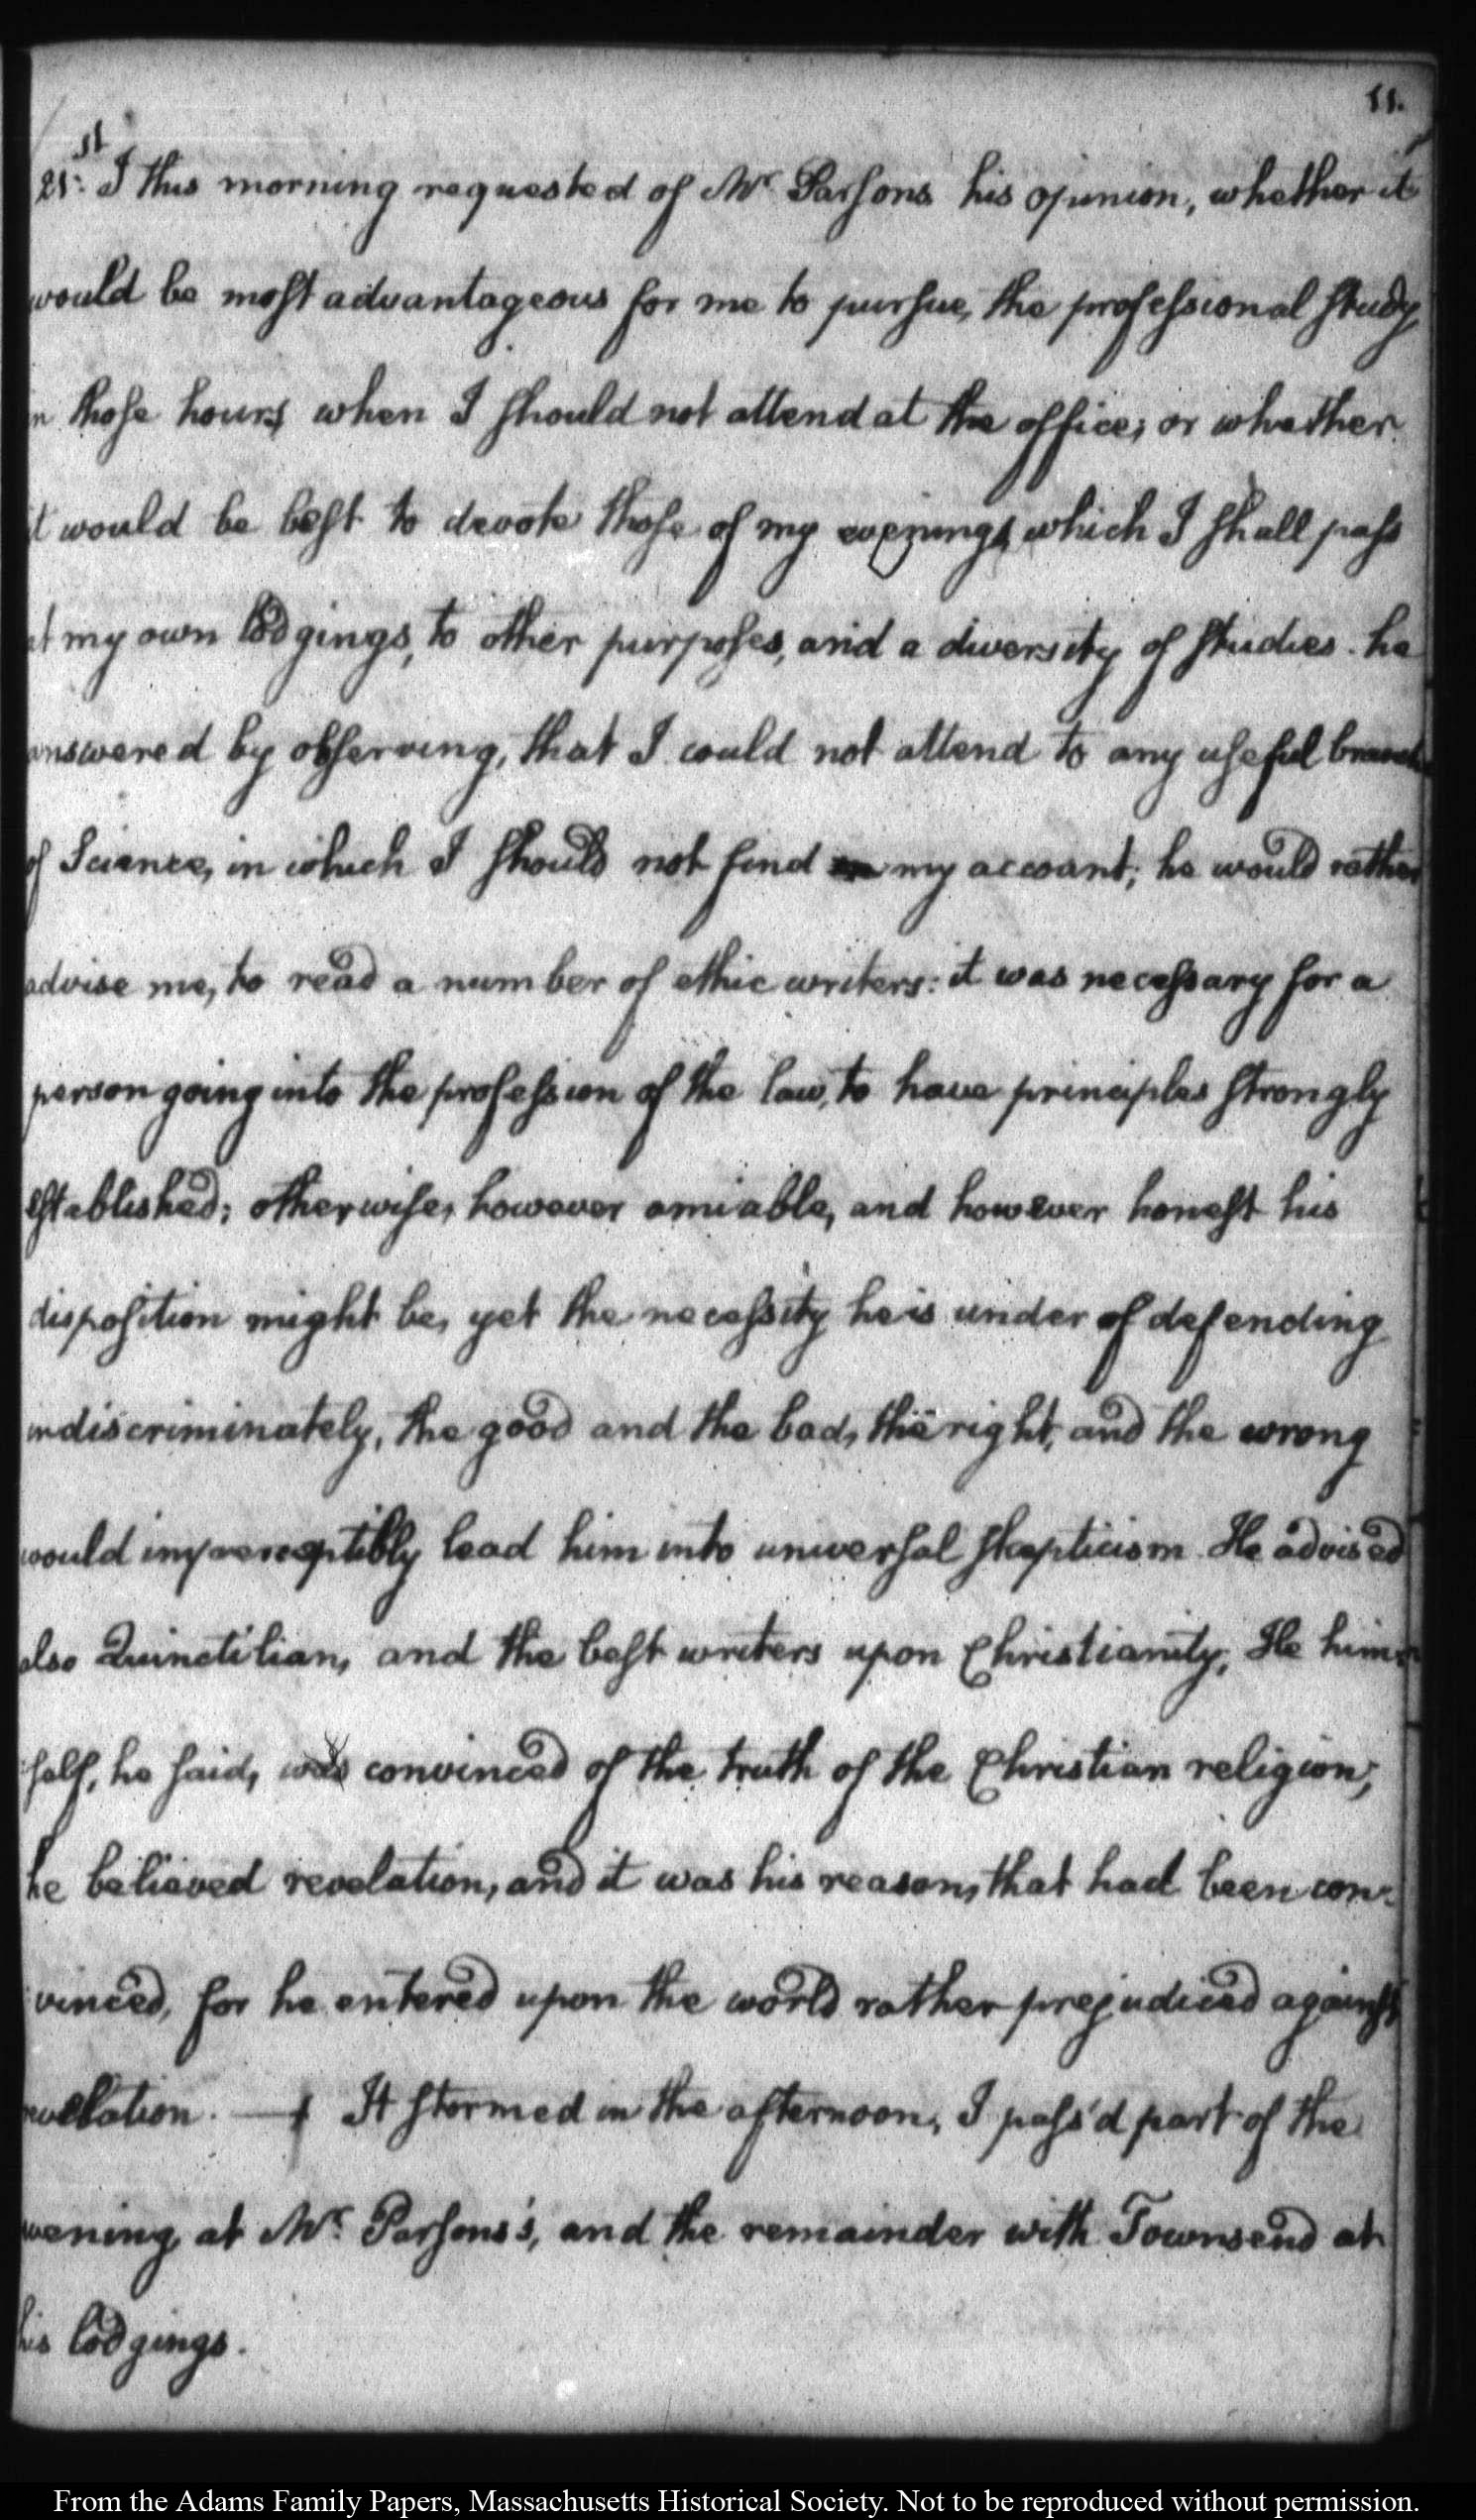 11.
21st. I this morning requested of Mr. Parsons his opinion, whether it
would be most advantageous for me to pursue, the professional study,
in those hours, when I should not attend at the office; or whether
it would be best to devote those of my evenings, which I shall pass
at my own lodgings, to other purposes, and a diversity of studies. he
answered by observing, that I could not attend to any useful branch
of Science, in which I should not find my account; he would rather
advise me, to read a number of ethic writers: it was necessary for a
person going into the profession of the law, to have principles strongly
established; otherwise, however amiable, and however honest his
disposition might be, yet the necessity he is under of defending
indiscriminately, the good and the bad, the right, and the wrong
would imperceptibly lead him into universal skepticism. He advised
also Quinctilian, and the best writers upon Christianity, He him-
self, he said, was convinced of the truth of the Christian religion;
he believed revelation, and it was his reason, that had been con-
vinced, for he entered upon the world rather prejudiced against
revelation. — It stormed in the afternoon, I pass'd part of the
evening, at Mr. Parsons's, and the remainder with Townsend at
his lodgings.
From the Adams Family Papers, Massachusetts Historical Society. Not to be reproduced without permission.